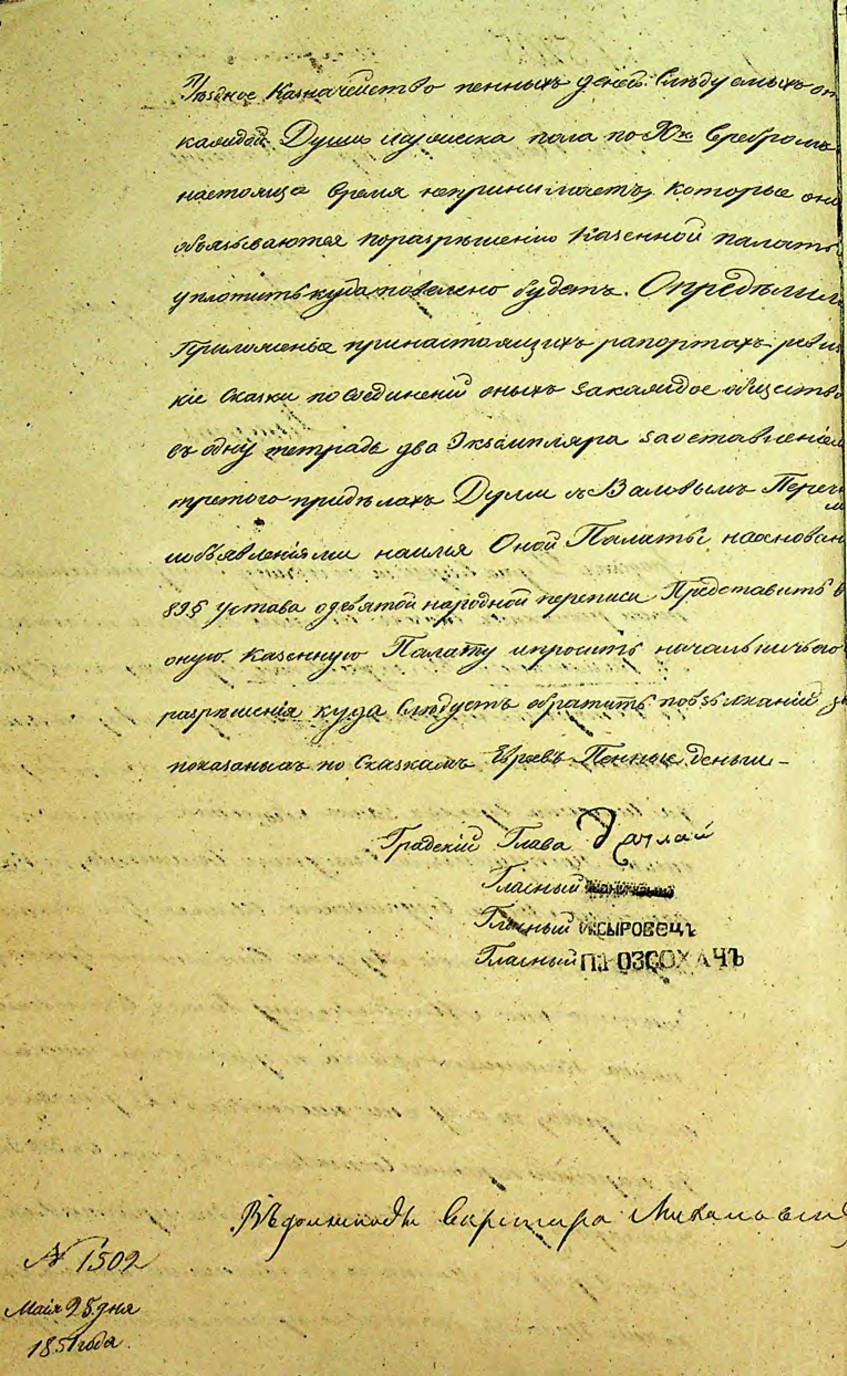 Уѣздное Казначейство пенныхъ денегъ Слѣдуемыхъ от
каждой Души мужеска пола по Сребромъ
настояще время непринимаетъ, которые они
обязываются поразрѣшению Казенной палаты
уплотить куда повелено будетъ. Опредѣлили
Приложеныя принастоящихъ рапортахъ ревиз
кіе Сказки посоединеній оныхъ закаждое общество
въ одну тетрадь два Экземпляра заоставленіем
третого придѣлахъ Думы съ Переч
иобъявленіями наимя Оной Палаты наоснован
89§ устава одевятой народной переписи Представить в
оную Казенную Палату ипросить начальничьего
разрѣшенія куда Слѣдуетъ обратить повзысканій за
показаныхъ по Сказкамъ Евреевъ Пенные деньги –
Градский Глава
Гласный
Гласный СЫРОВЕЦЪ
Гласный
Въ должности Секретара
№ 1502
Маія 25 дня
1851 года